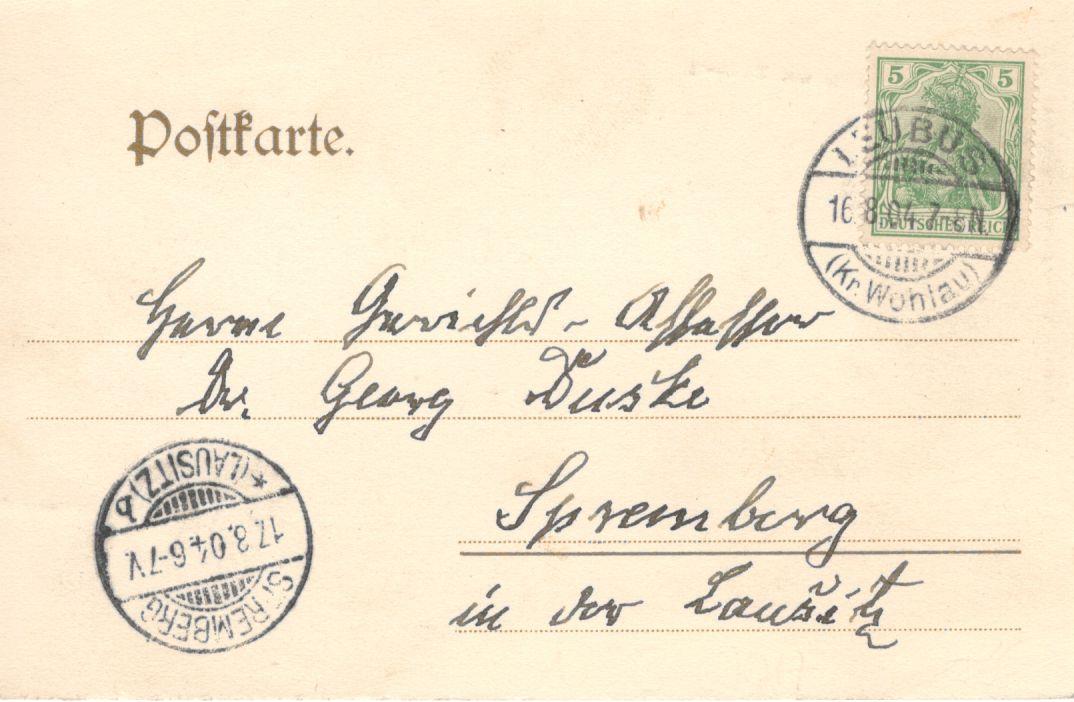 Postkarte.
5 5
DEUTSCHES REICH
LEUBUS
16.8.04.7-8N.
(Kr. Wohlau)
Herrn Gerichts-Assessor
Dr. Georg
Spremberg
in der Lausitz
SPREMBERG
17.8.04.6-7V.
*(LAUSITZ) b